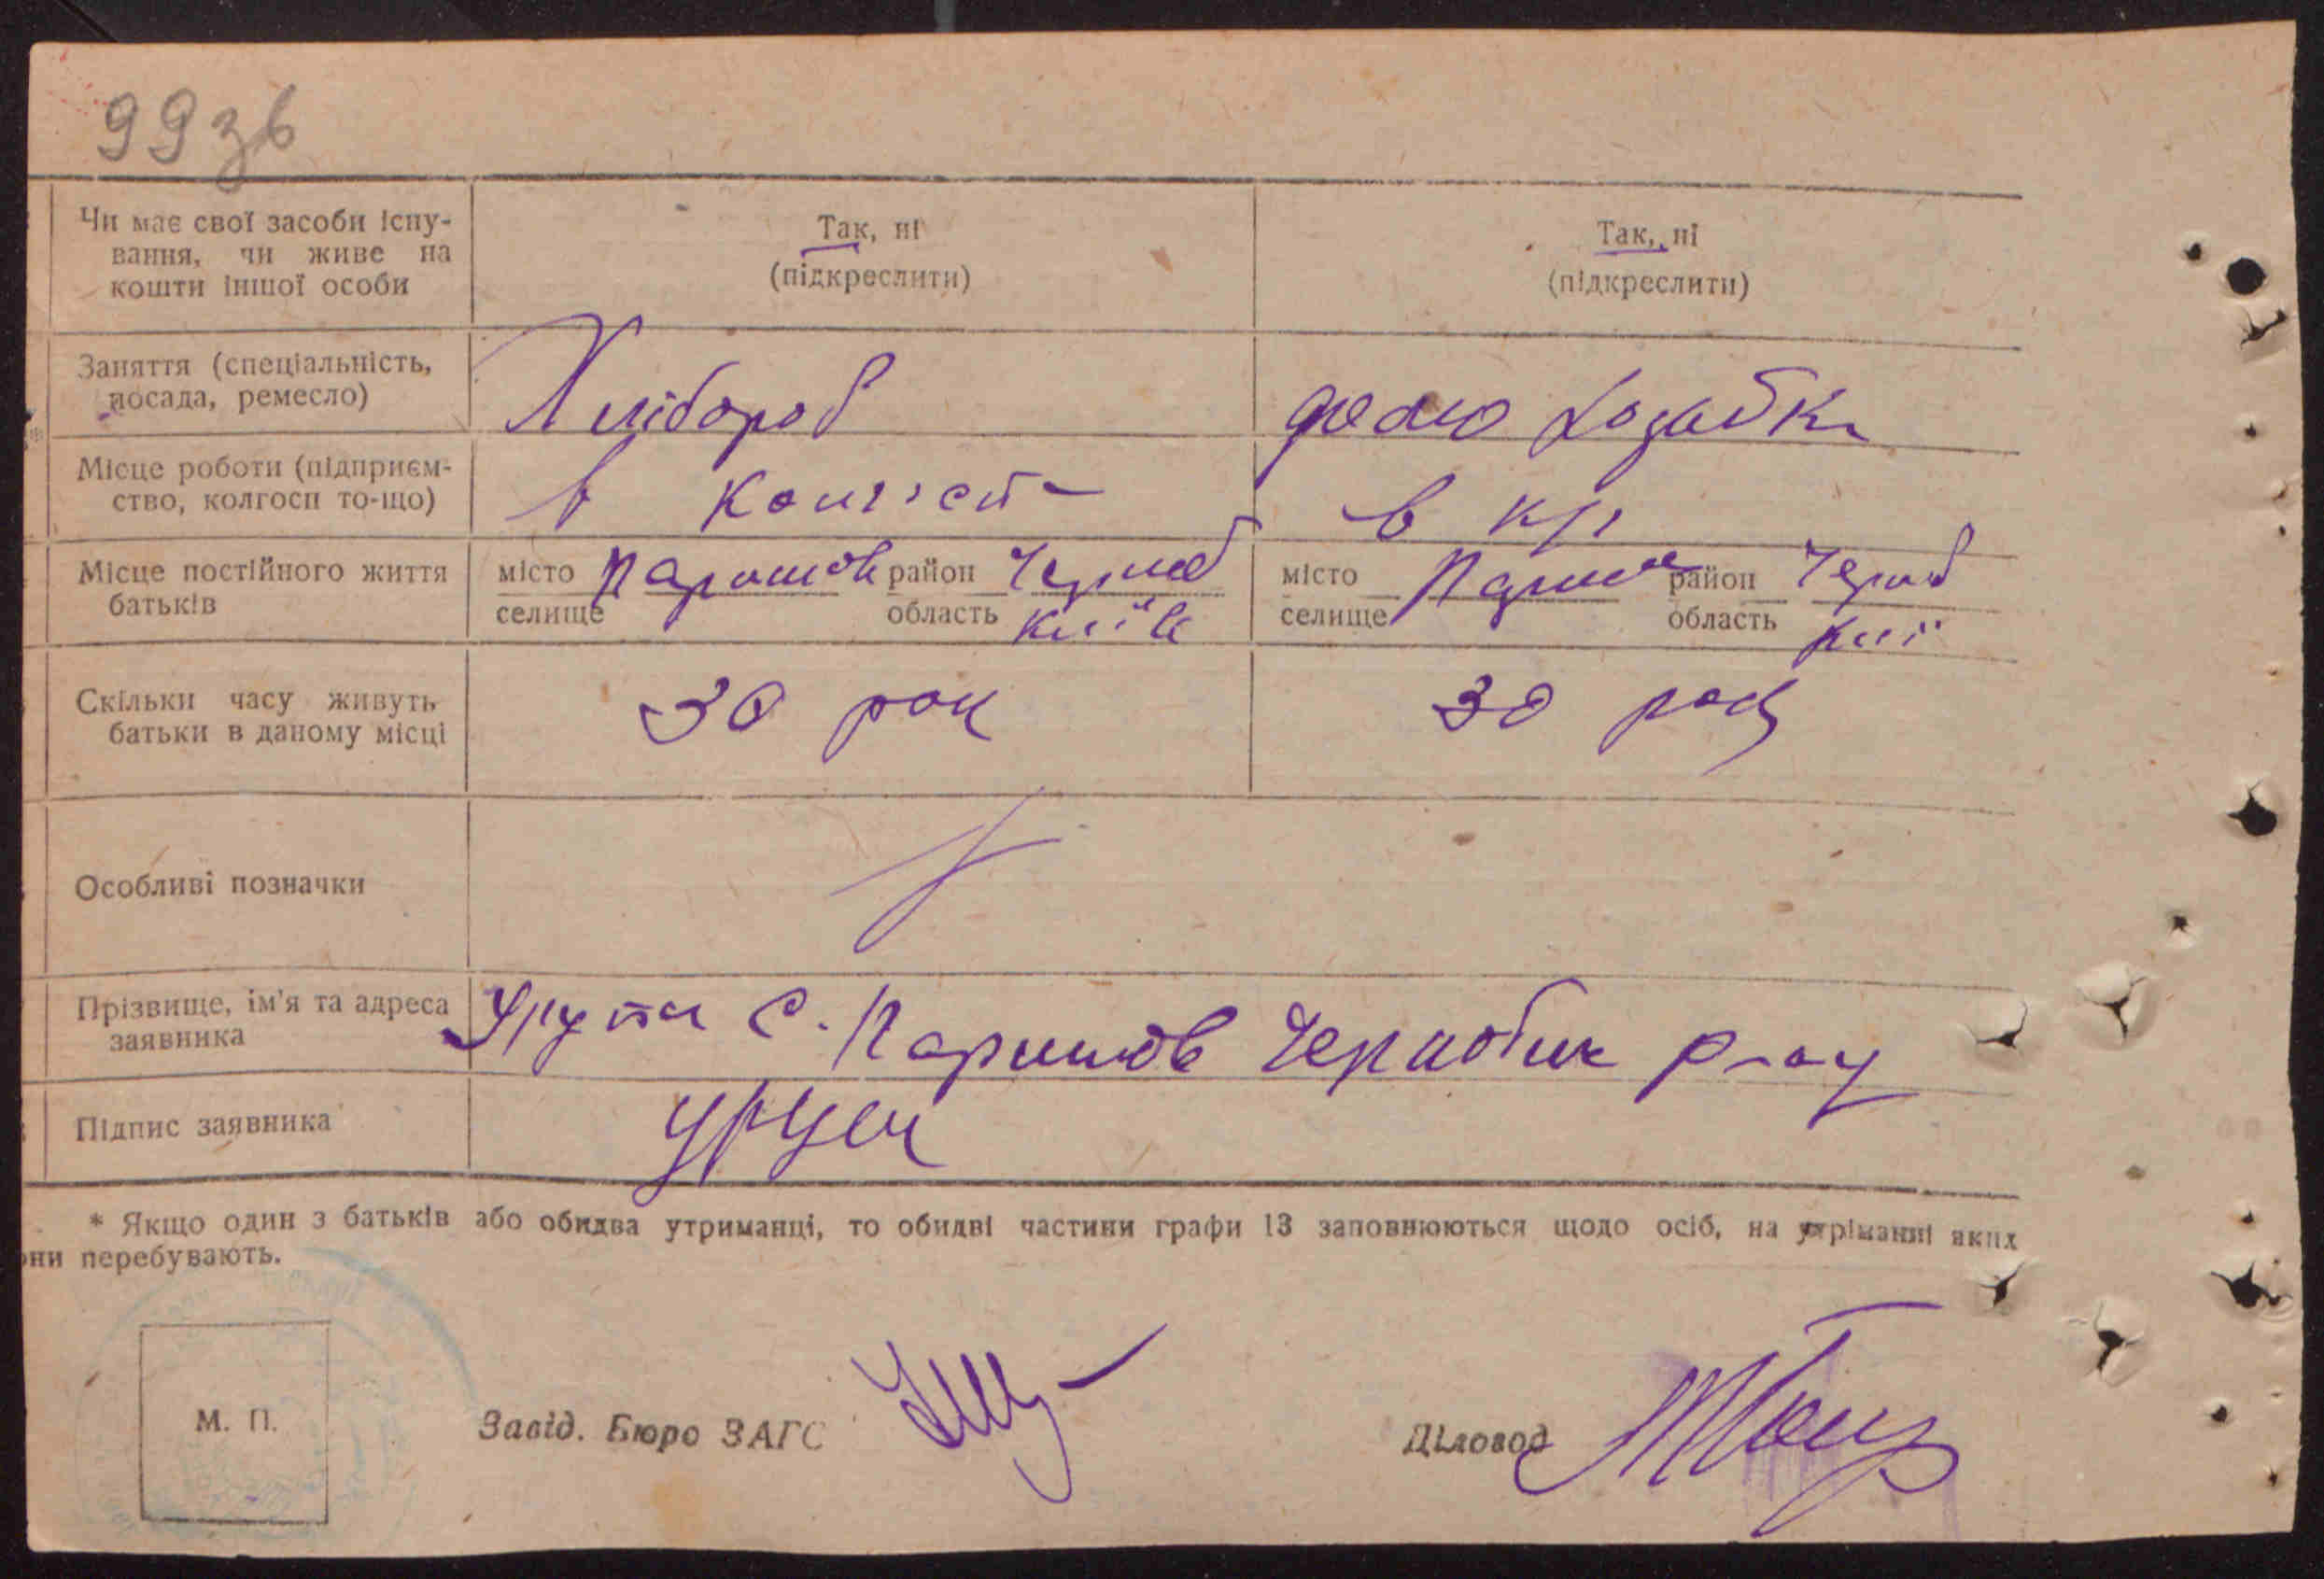 99зв
Чи має свої засоби існу-
вання, чи живе на
кошти іншої особи
Так, ні
(підкреслити)
Так, ні
(підкреслити)
Заняття (спеціальність,
посада, ремесло)
Хлібороб
домо хозяйка
Місце роботи (підприєм-
ство, колгосп то-що)
в
в
Місце постійного життя
батьків
місто
селище
Паришів
район
область
Чорноб
Київ
місто
селище
район
область
Чорноб
Киї
Скільки часу живуть
батьки в даному місці
30 рок
30 рок
Особливі позначки
Прізвище, ім'я та адреса
заявника
с. Паришів
Підпис заявника
* Якщо один з батьків або обидва утриманці, то обидві частини графи 13 заповнюються щодо осіб, на утріманні яких
они перебувають.
М. П.
Завід. Бюро ЗАГС
Діловод